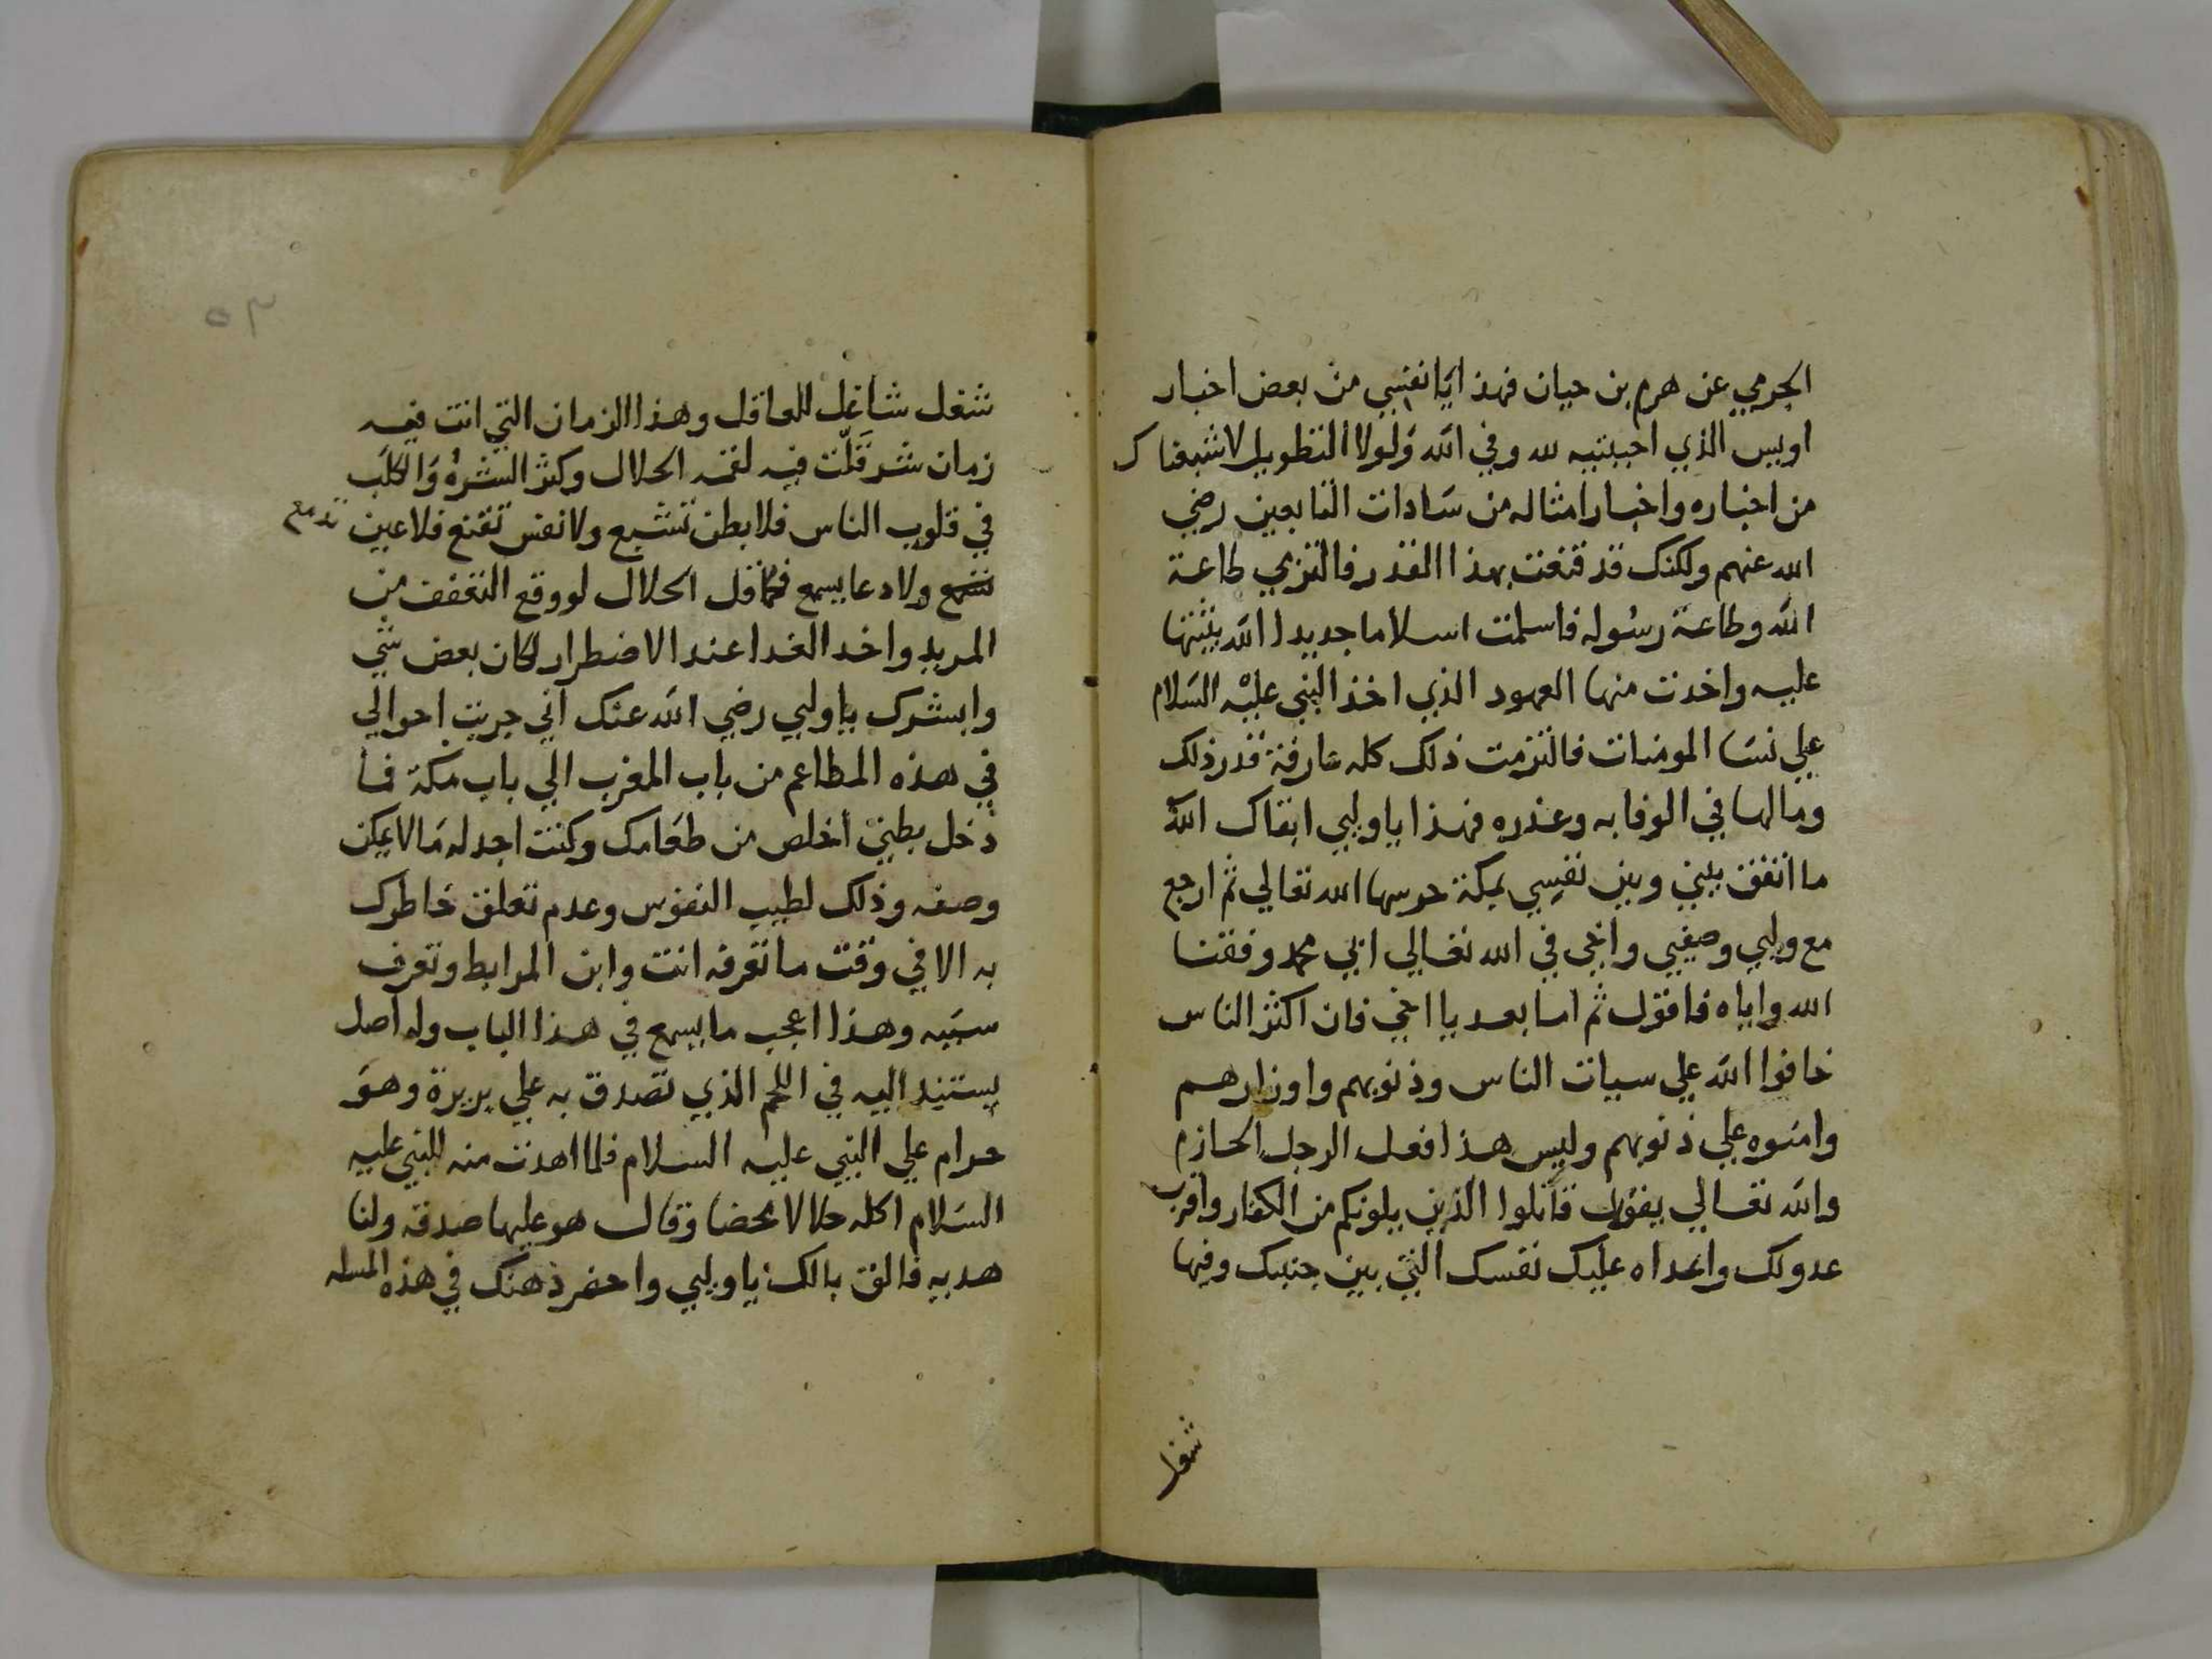 الجرمي عن هرم بن حيان فهذا يا نفسي من بعض اخبار
اويس الذي احببتيه لله وفي الله ولولا التطويل لاشبعناك
من اخباره واخبار امثاله من سادات التابعين رضي
الله عنهم ولكنك قد قنعت بهذا القدر فالتزمي طاعة
الله وطاعة رسوله فاسلمت اسلاما جديدا الله يثبتها
عليه واخذت منها العهود الذي اخذ النبي عليه السلام
علي نسا المومنات فالتزمت ذلك كله عارفة قدر ذلك
وما لها في الوفا به وغدره فهذا يا وليي ابقاك الله
ما اتفق بيني وبين نفسي بمكة حرسها الله تعالي ثم ارجع
مع وليي وصفيي واخي في الله تعالي ابي محمد وفقنا
الله واياه فاقول ثم اما بعد يا اخي فان اكثر الناس
خافوا الله علي سيات الناس وذنوبهم واوزارهم
وامنوه علي ذنوبهم وليس هذا فعل الرجل الحازم
والله تعالي يقول قاتلوا الذين يلونكم من الكفار واقرب
عدو لك واعداه عليك نفسك التي بين جنبيك وفيها
شغل
٥٣
شغل شاغل للعاقل وهذا الزمان التي انت فيه
زمان شر قلّت فيه لقمة الحلال وكثر الشره والكلب
في قلوب الناس فلا بطن تشبع ولا نفس تقنع فلا عين تدمع
ولا دعا يسمع فما قل الحلال لو وقع التعفف من
المريد واخد الغدا عند الاضطرار لكان بعض شي
وابشرك يا وليي رضي الله عنك اني جربت احوالي
في هذه المطاعم من باب المغرب الي باب مكة فما
دخل بطني اخلص من طعامك وكنت اجد له ما لا يمكن
وصفه وذلك لطيب النفوس وعدم تعلق خاطرك
به الا في وقت ما تعرفه انت وابن المرابط وتعرف
سببه وهذا اعجب ما يسمع في هذا الباب وله اصل
يستند اليه في اللحم الذي تصدق به علي بريرة وهو
حرام علي النبي عليه السلام فلما اهدت منه للنبي عليه
السلام اكله حلالا محضا وقال هو عليها صدقة ولنا
هدية فالق بالك يا وليي واحضر ذهنك في هذه المسله